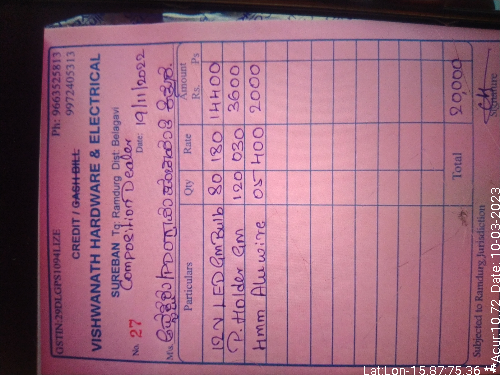 GSTIN:29DLGPS1094L1ZE Ph: 9663525813
9972405313
CREDIT / CASH BILL
VISHWANATH HARDWARE & ELECTRICAL
SUREBAN Tq: Ramdurg Dist: Belagavi
Composition Dealer
No. 27 Date: 19/11/2022
M/s.
Particulars Qty Rate Amount
Rs. Ps
12 V LED GM Bulb 80 180 14400
P. Holder GM 120 030 3600
4mm Alu wire 05 400 2000
Total 20,000
Subjected to Ramdurg Jurisdiction Signature
Lat:Lon-15.87:75.36 ** Acur:10.72 Date: 10-03-2023